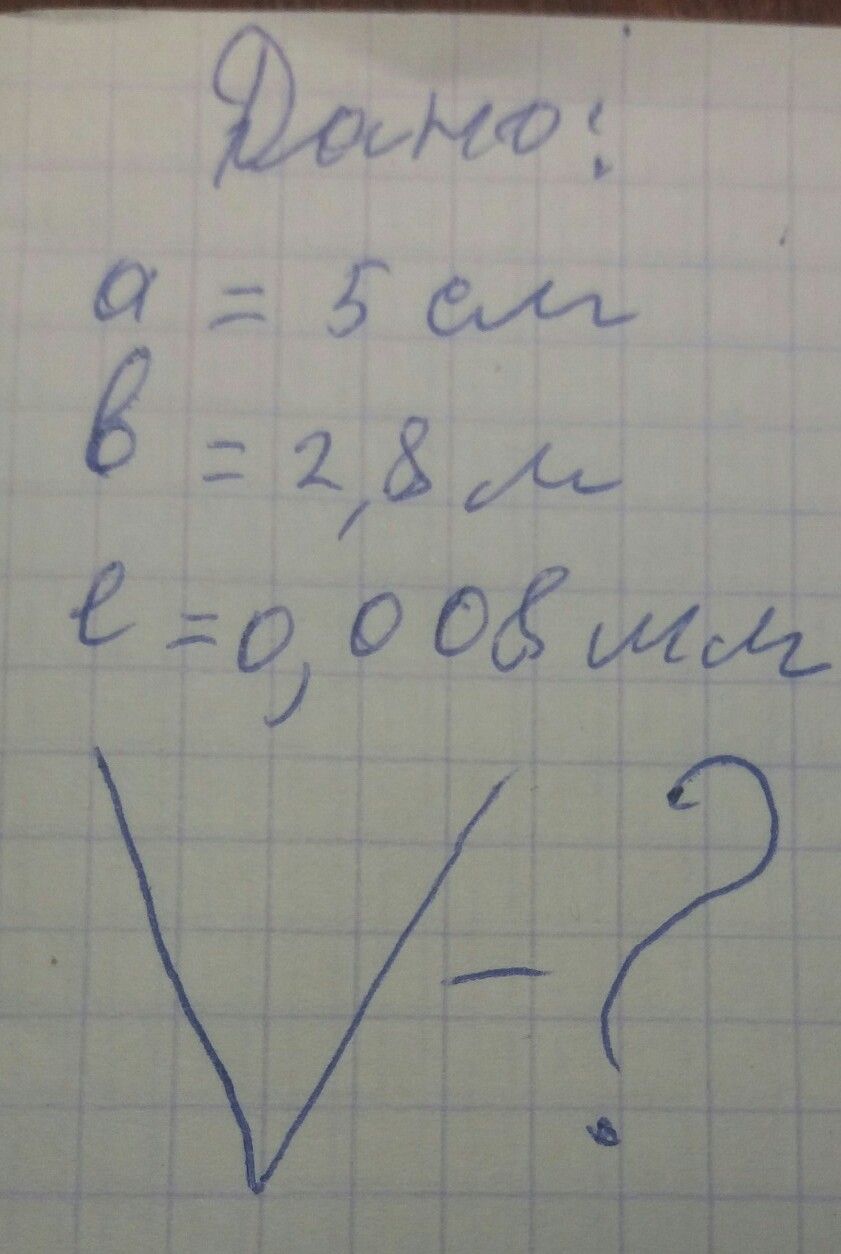 Дано:
а = 5 см
в = 2,8 м
е = 0,008 мм
V - ?